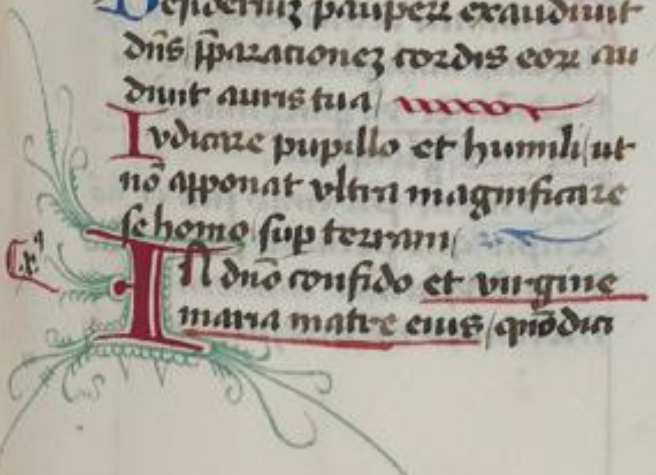 Desideriuȝ pauperꝝ exaudiuit
dn̄s p̄paracioneȝ cordis eorꝝ au
diuit auris tua /
Iudicare pupillo et humili / ut
nō apponat vltra magnificare
se homo / sup terram /
IN dn̄o confido et virgine
maria matre eius / quōdici